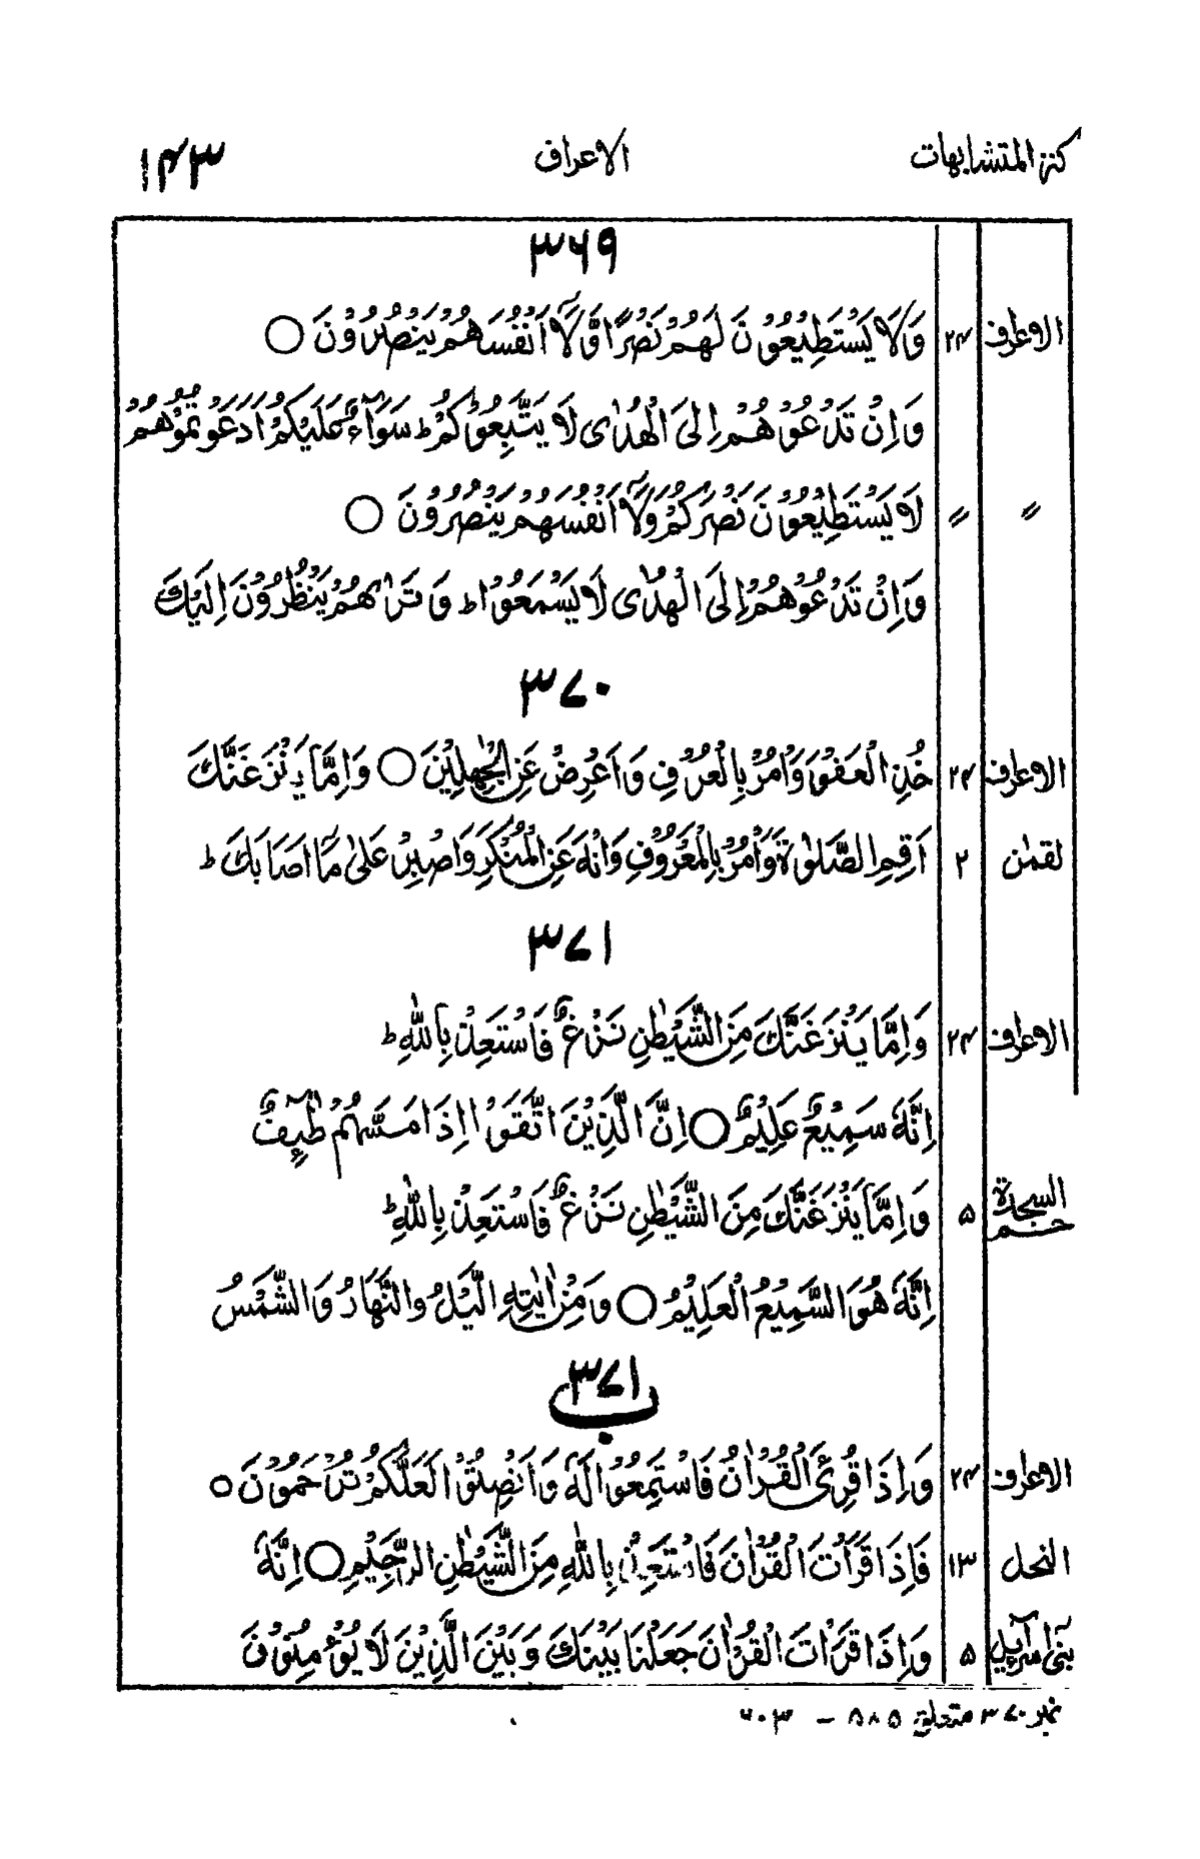 كنز المتشابهات الاعراف ۱۴۳
۳۶۹
الاعراف ۲۴ وَلَا يَسْتَطِيْعُوْنَ لَهُمْ نَصْرًا وَّلَآ اَنْفُسَهُمْ يَنْصُرُوْنَ ○
وَاِنْ تَدْعُوْهُمْ اِلَى الْهُدٰى لَا يَتَّبِعُوْكُمْ ؕ سَوَآءٌ عَلَيْكُمْ اَدَعَوْتُمُوْهُمْ
〃 〃 لَا يَسْتَطِيْعُوْنَ نَصْرَكُمْ وَلَآ اَنْفُسَهُمْ يَنْصُرُوْنَ ○
وَاِنْ تَدْعُوْهُمْ اِلَى الْهُدٰى لَا يَسْمَعُوْا ؕ وَ تَرٰىهُمْ يَنْظُرُوْنَ اِلَيْكَ
۳۷۰
الاعراف ۲۴ خُذِ الْعَفْوَ وَاْمُرْ بِالْعُرْفِ وَاَعْرِضْ عَنِ الْجٰهِلِيْنَ ○ وَاِمَّا يَنْزَغَنَّكَ
لقمٰن ۲ اَقِمِ الصَّلٰوةَ وَاْمُرْ بِالْمَعْرُوْفِ وَانْهَ عَنِ الْمُنْكَرِ وَاصْبِرْ عَلٰى مَآ اَصَابَكَ ؕ
۳۷۱
الاعراف ۲۴ وَاِمَّا يَنْزَغَنَّكَ مِنَ الشَّيْطٰنِ نَزْغٌ فَاسْتَعِذْ بِاللّٰهِ ؕ
اِنَّهٗ سَمِيْعٌ عَلِيْمٌ ○ اِنَّ الَّذِيْنَ اتَّقَوْا اِذَا مَسَّهُمْ طٰٓئِفٌ
حٰم السجدة ۵ وَاِمَّا يَنْزَغَنَّكَ مِنَ الشَّيْطٰنِ نَزْغٌ فَاسْتَعِذْ بِاللّٰهِ ؕ
اِنَّهٗ هُوَ السَّمِيْعُ الْعَلِيْمُ ○ وَمِنْ اٰيٰتِهِ الَّيْلُ والنَّهَارُ وَالشَّمْسُ
۳۷۱ ب
الاعراف ۲۴ وَاِذَا قُرِئَ الْقُرْاٰنُ فَاسْتَمِعُوْا لَهٗ وَاَنْصِتُوْا لَعَلَّكُمْ تُرْحَمُوْنَ ○
النحل ۱۳ فَاِذَا قَرَاْتَ الْقُرْاٰنَ فَاسْتَعِذْ بِاللّٰهِ مِنَ الشَّيْطٰنِ الرَّجِيْمِ ○ اِنَّهٗ
بنیٓ اسرآءیل ۵ وَاِذَا قَرَاْتَ الْقُرْاٰنَ جَعَلْنَا بَيْنَكَ وَبَيْنَ الَّذِيْنَ لَا يُؤْمِنُوْنَ
نمبر ۳۷۰ متعلق ۵۸۵ – ۶۰۳